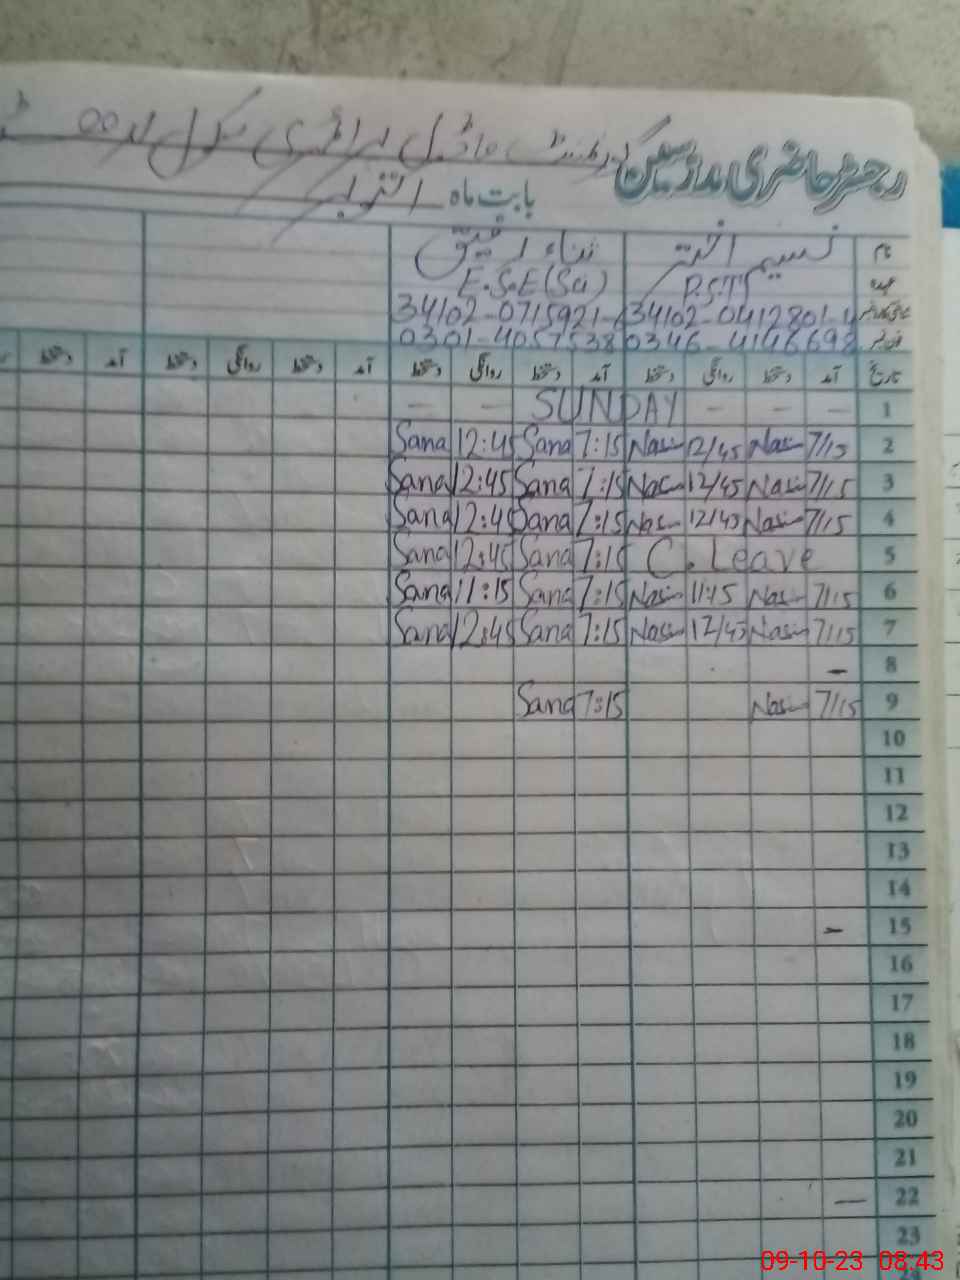 رجسٹر حاضری مدرسین گورنمنٹ ماڈل پرائمری سکول
بابت ماہ اکتوبر
نام نسیم اختر ثناء رفیق
عہدہ P.S.T E.S.E(Sci)
34102-0412801- 34102-0715921-
فون نمبر 0346-4146698 0301-4057538
تاریخ آمد دستخط روانگی دستخط آمد دستخط روانگی دستخط آمد دستخط روانگی دستخط آمد دستخط
1 — — — SUNDAY — —
2 7/15 Nasim 12/45 Nasim 7:15 Sana 12:45 Sana
3 7/15 Nasim 12/45 Nasim 7:15 Sana 12:45 Sana
4 7/15 Nasim 12/45 Nasim 7:15 Sana 12:45 Sana
5 C.Leave 7:15 Sana 12:45 Sana
6 7/15 Nasim 11:15 Nasim 7:15 Sana 11:15 Sana
7 7/15 Nasim 12/45 Nasim 7:15 Sana 12:45 Sana
8 —
9 7/15 Nasim 7:15 Sana
10
11
12
13
14
15 —
16
17
18
19
20
21
22 —
23
09-10-23 08:43